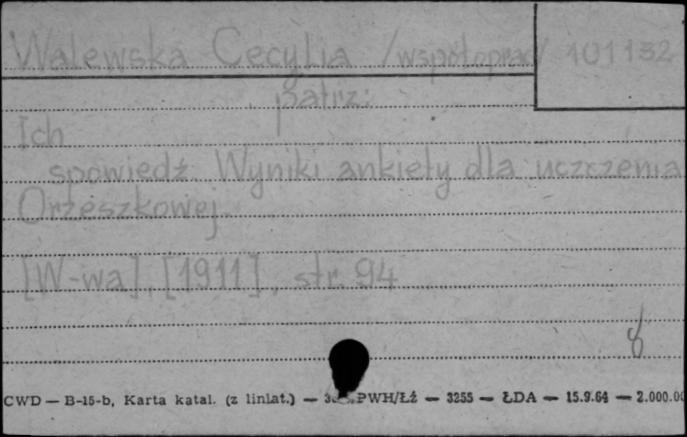 Walewska Cecylia /współoprac/ 101132
patrz:
Ich
spowiedź. Wyniki ankiety dla uczczenia
Orzeszkowej.
[W-wa], [1911], str. 94
CWD — B-15-b, Karta katal. (z liniat.) — PWH/Łź — 3255 — ŁDA — 15.9.64 — 2.000.00